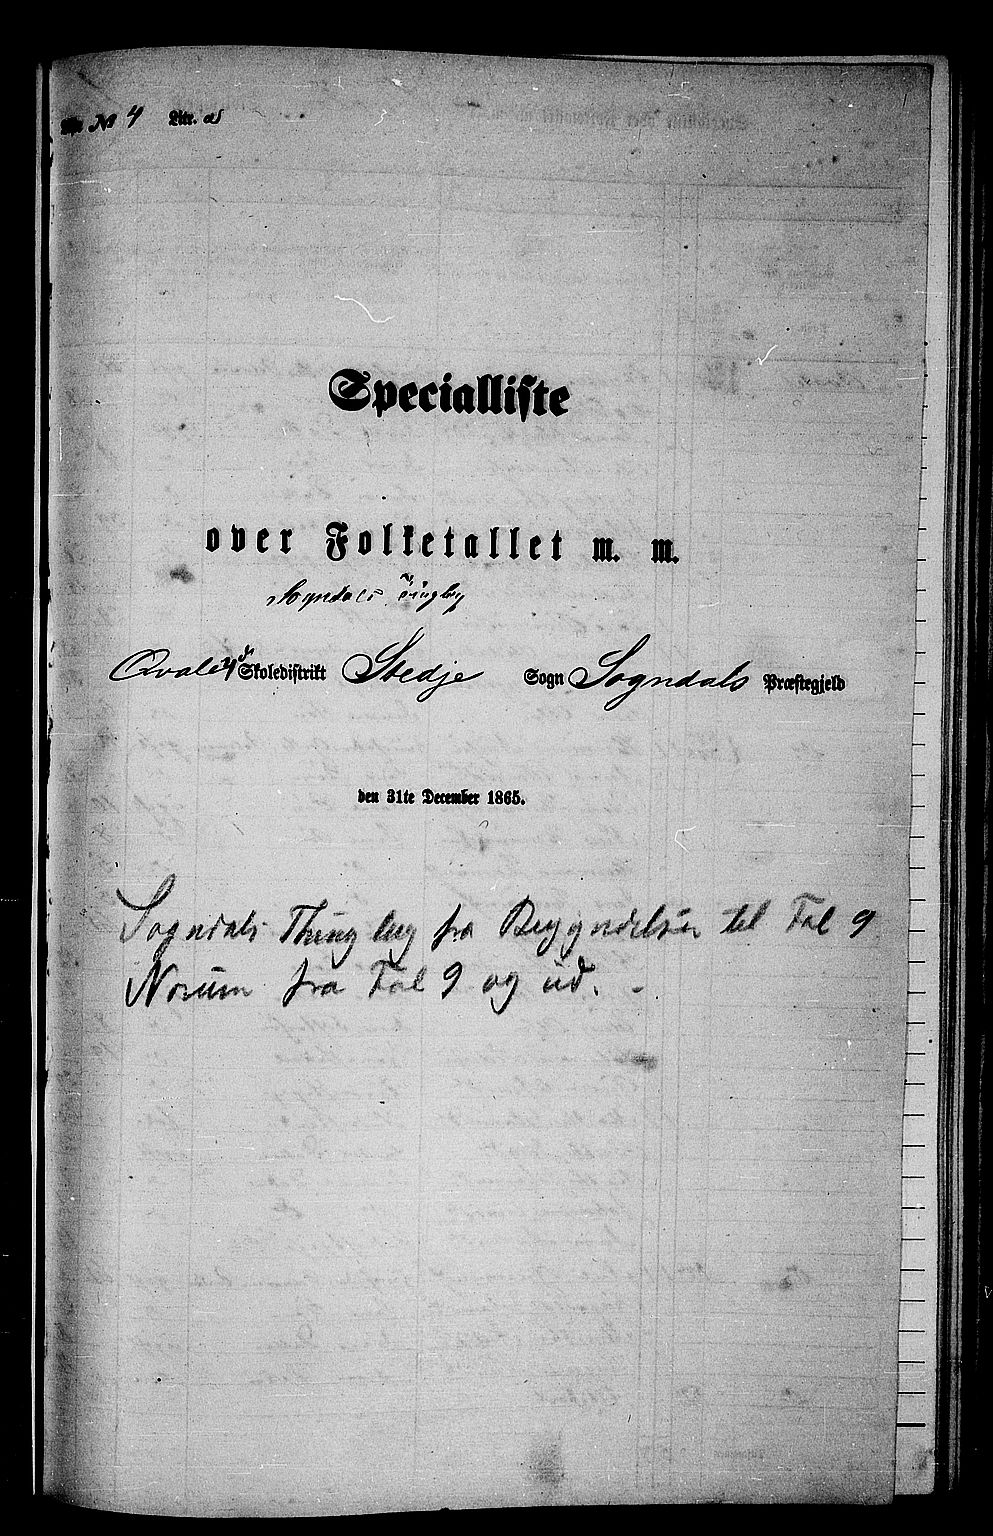 № 4 Litr. a
Specialliste
over Folketallet m. m.
Sogndals Tingley
Qvale 4de Skoledistrikt Stedje Sogn Sogndals Præstegjeld
den 31te December 1865.
Sogndals Thinglag fra Begyndelsen til Fol 9
Norum fra Fol 9 og ud.